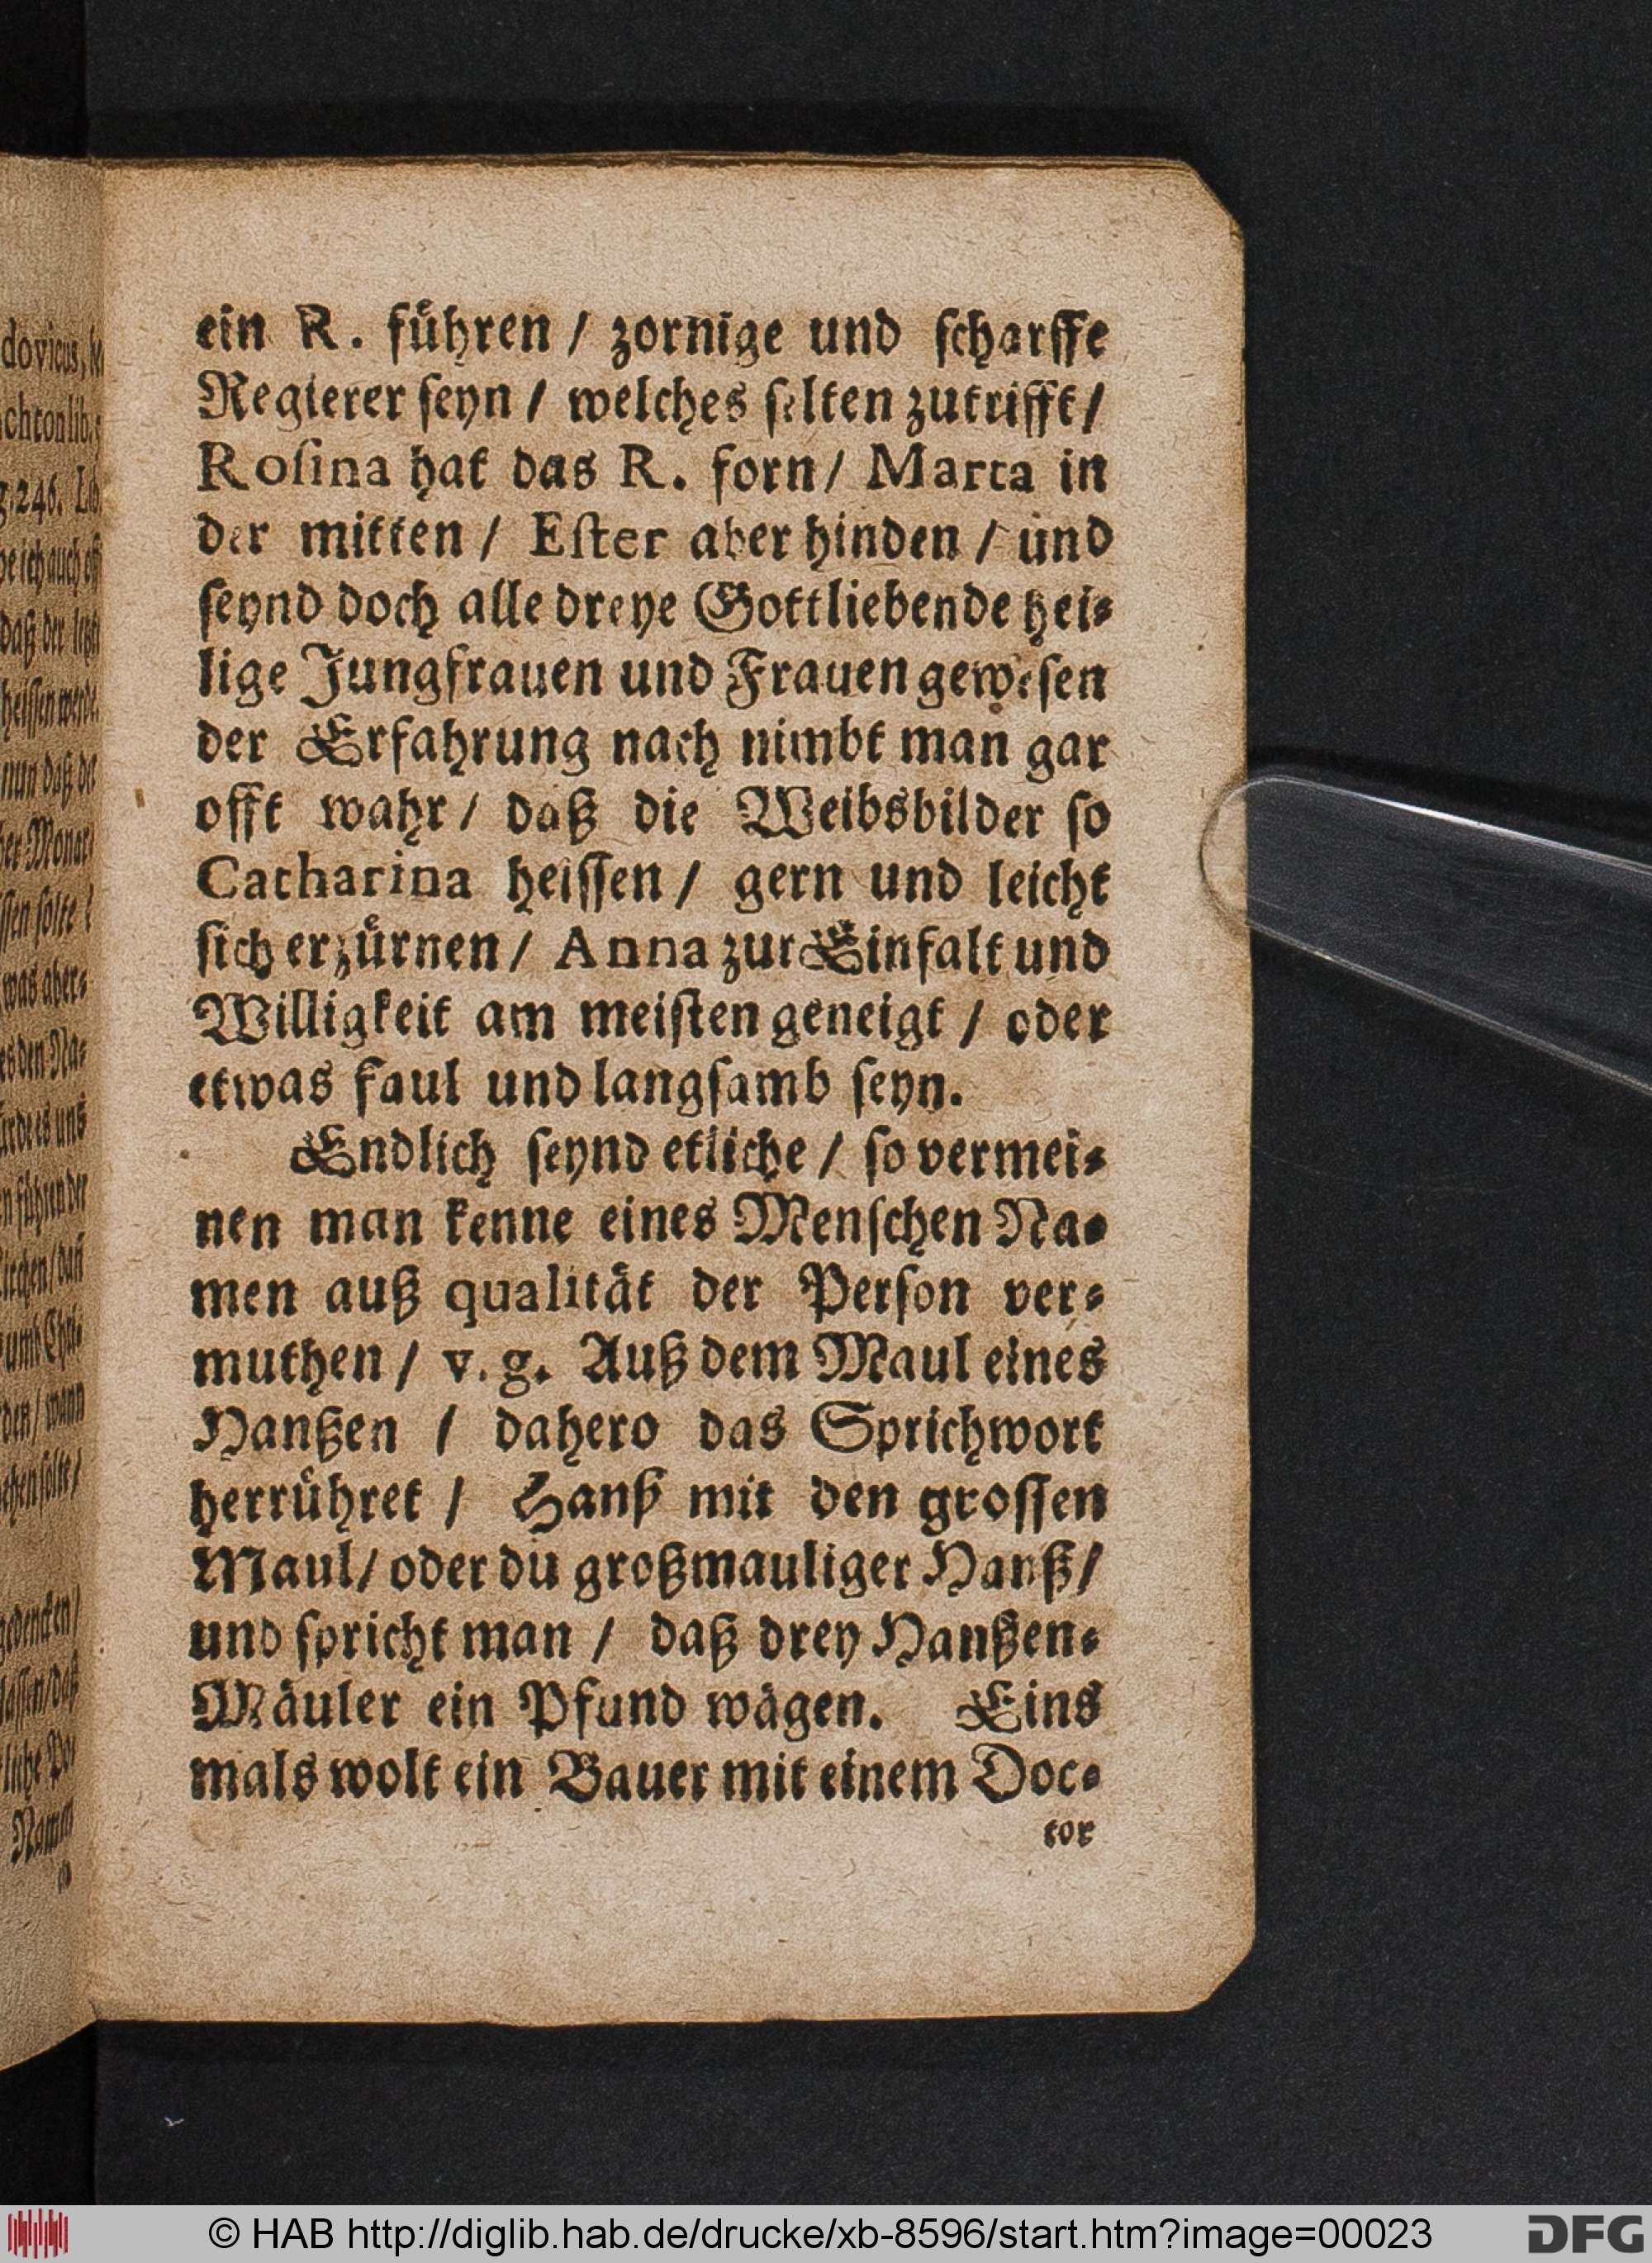 ein R. führen / zornige und scharffe
Regierer seyn / welches selten zutrifft /
Rosina hat das R. forn / Marta in
der mitten / Ester aber hinden / und
seynd doch alle dreye Gottliebende hei⸗
lige Jungfrauen und Frauen gewesen
der Erfahrung nach nimbt man gar
offt wahr / daß die Weibsbilder so
Catharina heissen / gern und leicht
sich erzürnen / Anna zur Einfalt und
Willigkeit am meisten geneigt / oder
etwas faul und langsamb seyn.
Endlich seynd etliche / so vermei⸗
nen man kenne eines Menschen Na⸗
men auß qualität der Person ver⸗
muthen / v. g. Auß dem Maul eines
Hanßen / dahero das Sprichwort
herrühret / Hanß mit den grossen
Maul / oder du großmauliger Hanß /
und spricht man / daß drey Hanßen⸗
Mäuler ein Pfund wägen. Eins
mals wolt ein Bauer mit einem Doc⸗
tor
© HAB http://diglib.hab.de/drucke/xb-8596/start.htm?image=00023
DFG